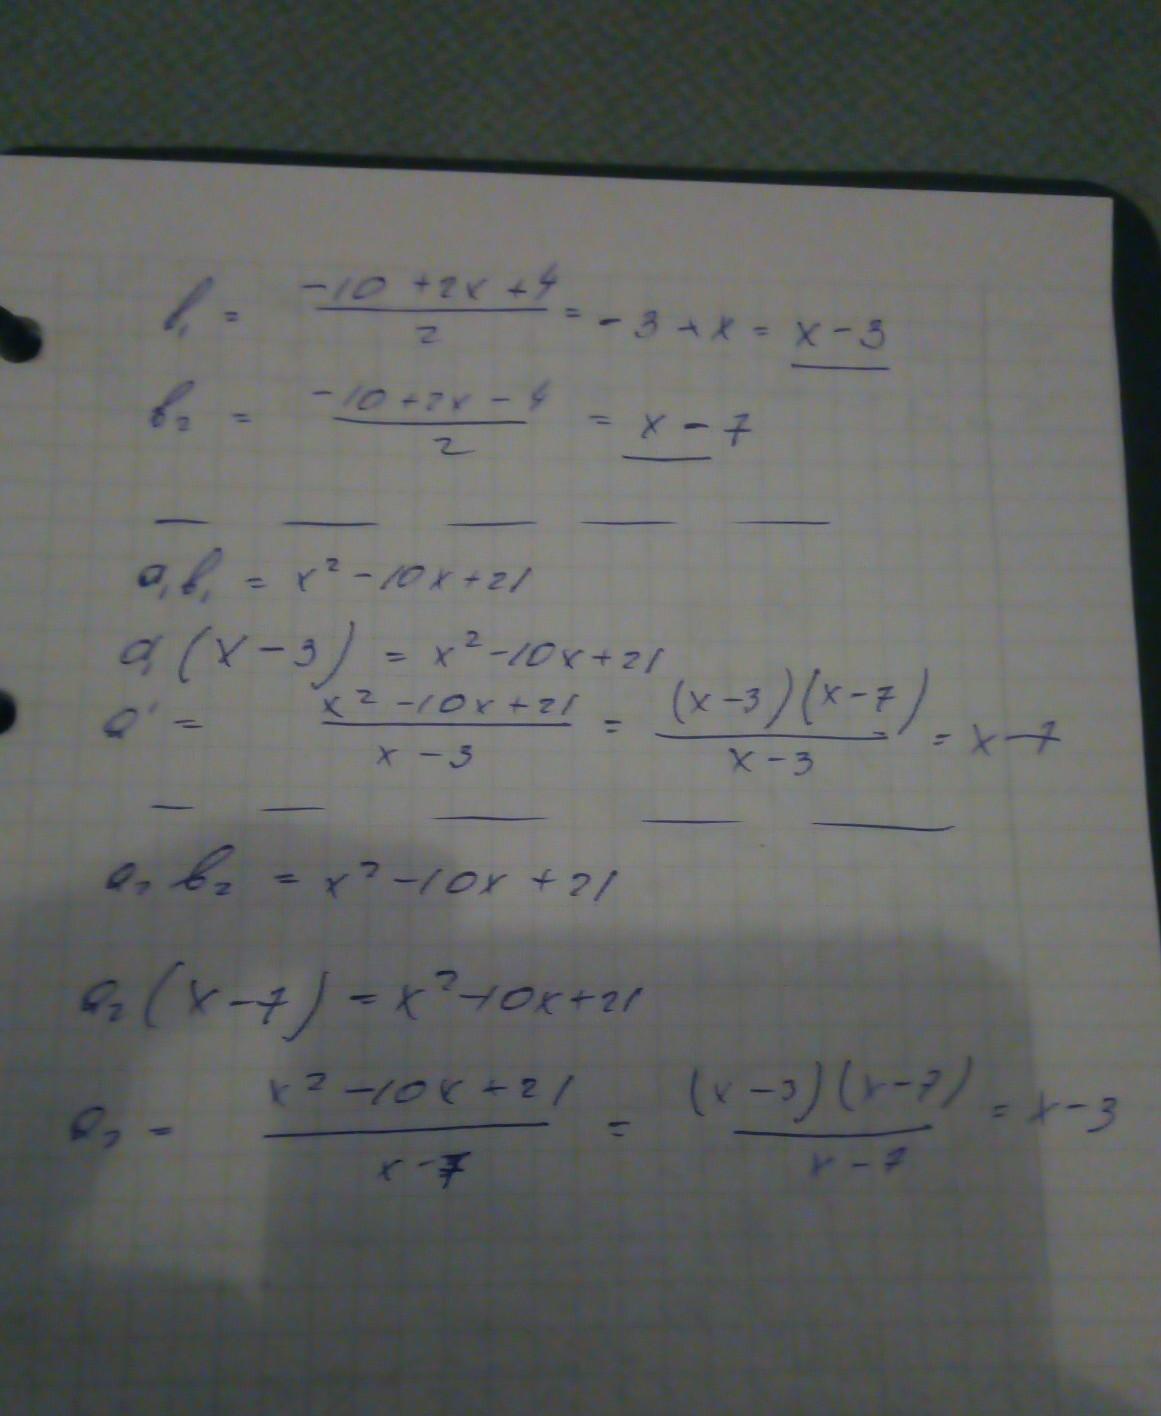 в₁ = (-10 + 2x + 4)/2 = -3 + x = x - 3
в₂ = (-10 + 2x - 4)/2 = x - 7
a₁в₁ = x² - 10x + 21
a₁(x - 3) = x² - 10x + 21
a' = (x² - 10x + 21)/(x - 3) = ((x - 3)(x - 7))/(x - 3) = x - 7
a₂в₂ = x² - 10x + 21
a₂(x - 7) = x² - 10x + 21
a₂ = (x² - 10x + 21)/(x - 7) = ((x - 3)(x - 7))/(x - 7) = x - 3